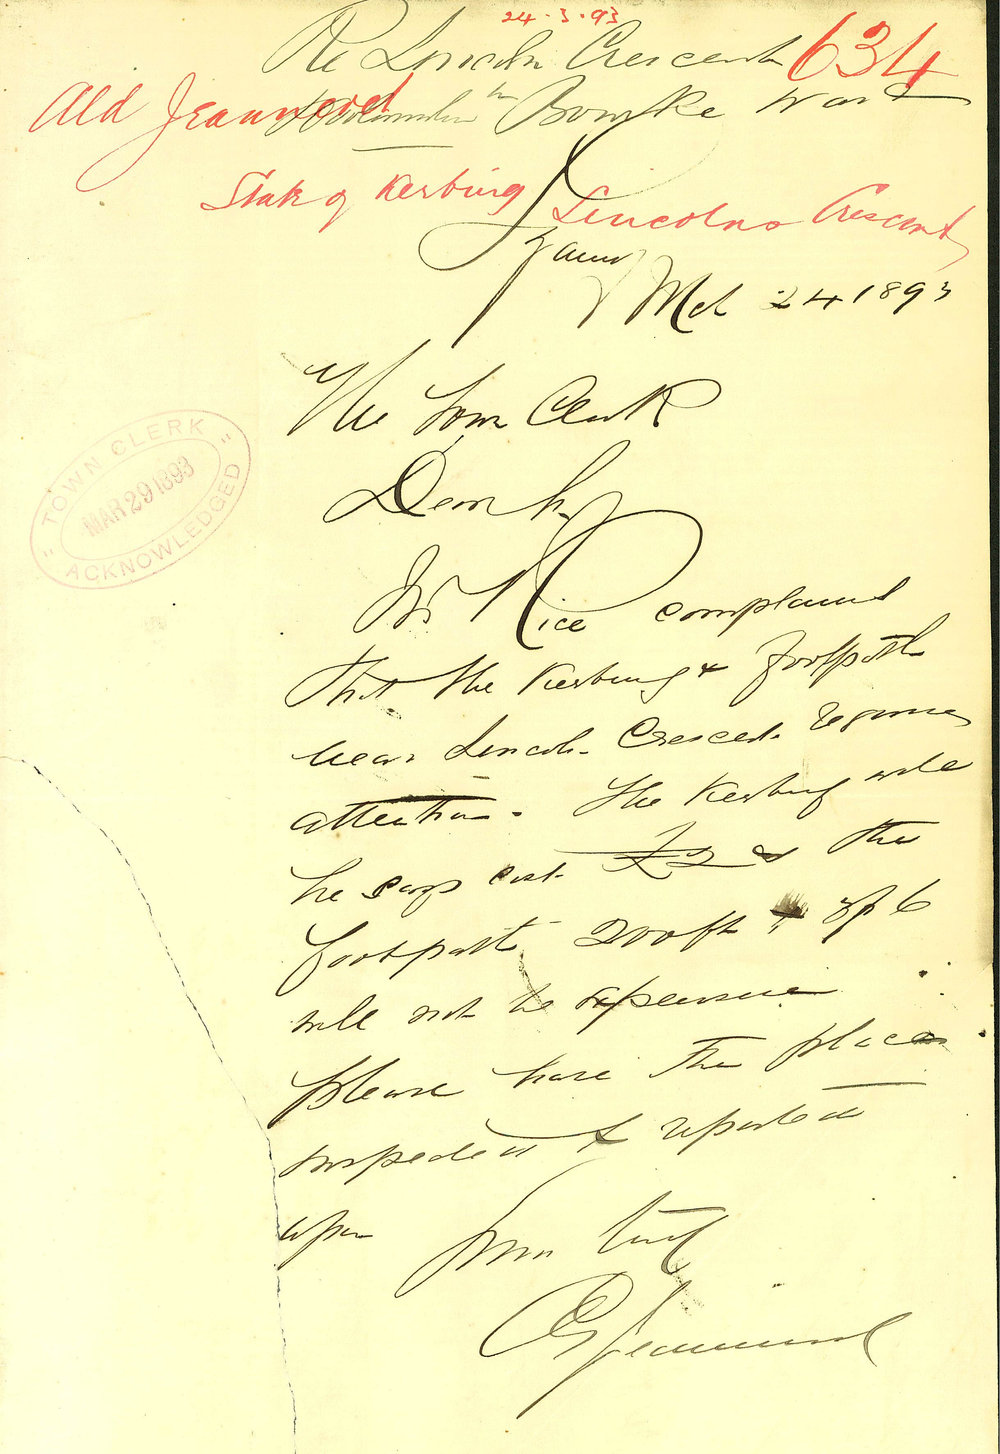 24.3.93
Re Lincoln Crescent 634
Ald Jeanneret Bourke Ward
State of Kerbing Lincolns Crescent
Mch 24 1893
The Town Clerk
TOWN CLERK
MAR 29 1893
ACKNOWLEDGED
Dear Sir
Mr Rice complained
that the Kerbing & footpath
near Lincoln Crescent requires
attention. The Kerbing will
he says cost £2 & the
footpath 200ft of 6
will not be expensive
please have the place
inspected & reported
upon Yours truly
C E Jeanneret